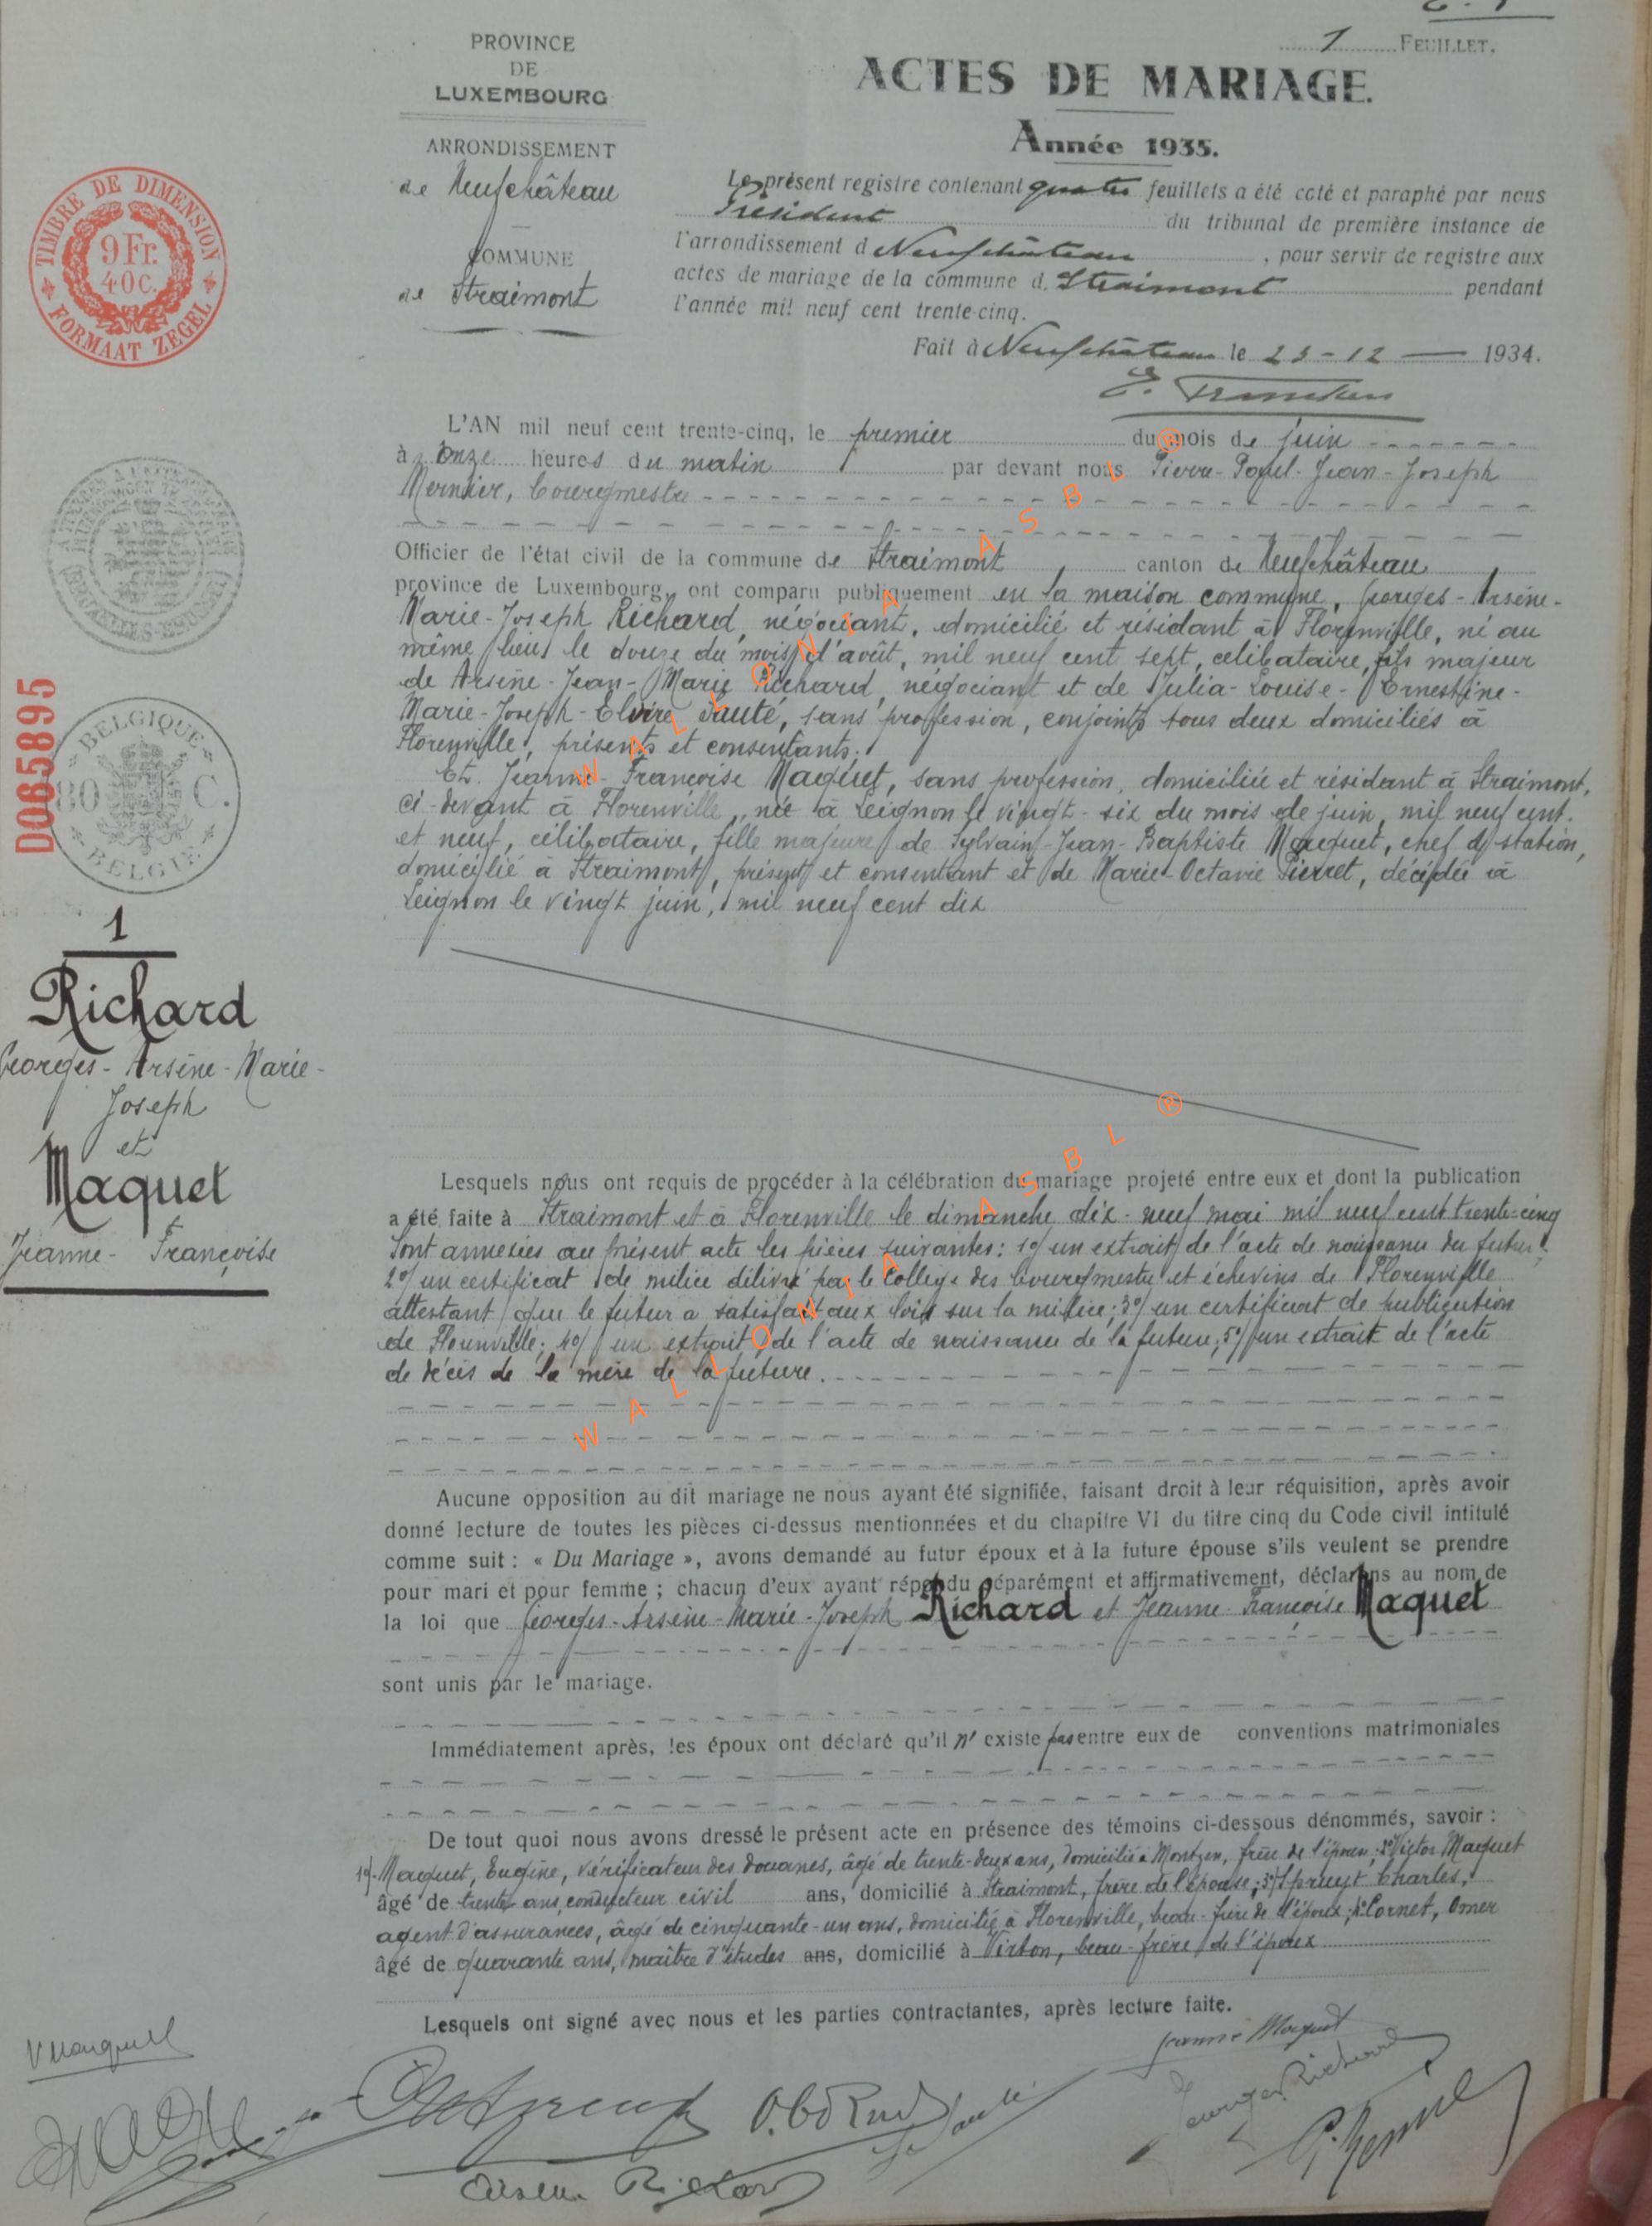 1 FEUILLET.
PROVINCE
DE
LUXEMBOURG
ACTES DE MARIAGE.
Année 1935.
ARRONDISSEMENT
de Neufchâteau
COMMUNE
de Straimont
TIMBRE DE DIMENSION
9 Fr.
40 C.
FORMAAT ZEGEL
Le présent registre contenant quatre feuillets a été coté et paraphé par nous
Président du tribunal de première instance de
l'arrondissement d Neufchâteau, pour servir de registre aux
actes de mariage de la commune d. Straimont pendant
l'année mil neuf cent trente-cinq.
Fait à Neufchâteau le 23-12 — 1934.
L'AN mil neuf cent trente-cinq, le premier du mois de juin
à onze heures du matin par devant nous Pierre-Paul-Jean-Joseph
Mernier, bourgmestre
Officier de l'état civil de la commune de Straimont canton de Neufchâteau
province de Luxembourg, ont comparu publiquement en la maison commune, Georges-Arsène-
Marie-Joseph Richard, négociant, domicilié et résidant à Florenville, né au
même lieu le douze du mois d'août, mil neuf cent sept, célibataire, fils majeur
de Arsène-Jean-Marie Richard, négociant et de Julia-Louise-Ernestine-
Marie-Joseph-Elvire Sauté, sans profession, conjoints tous deux domiciliés à
Florenville, présents et consentants;
Et Jeanne-Françoise Maquet, sans profession, domiciliée et résidant à Straimont,
ci-devant à Florenville, née à Leignon le vingt-six du mois de juin, mil neuf cent
et neuf, célibataire, fille majeure de Sylvain-Jean-Baptiste Maquet, chef de station,
domicilié à Straimont, présent et consentant et de Marie-Octavie Pierret, décédée à
Leignon le vingt juin, mil neuf cent dix
D0858895
BELGIQUE
80 C.
BELGIE
1
Richard
Georges-Arsène-Marie-
Joseph
et
Maquet
Jeanne-Françoise
Lesquels nous ont requis de procéder à la célébration du mariage projeté entre eux et dont la publication
a été faite à Straimont et à Florenville le dimanche dix-neuf mai mil neuf cent trente-cinq
Sont annexées au présent acte les pièces suivantes: 1°/ un extrait de l'acte de naissance du futur;
2°/ un certificat de milice délivré par le Collège des bourgmestre et échevins de Florenville
attestant que le futur a satisfait aux lois sur la milice; 3°/ un certificat de publication
de Florenville; 4°/ un extrait de l'acte de naissance de la future; 5°/ un extrait de l'acte
de décès de la mère de la future.
Aucune opposition au dit mariage ne nous ayant été signifiée, faisant droit à leur réquisition, après avoir
donné lecture de toutes les pièces ci-dessus mentionnées et du chapitre VI du titre cinq du Code civil intitulé
comme suit : « Du Mariage », avons demandé au futur époux et à la future épouse s'ils veulent se prendre
pour mari et pour femme ; chacun d'eux ayant répondu séparément et affirmativement, déclarons au nom de
la loi que Georges-Arsène-Marie-Joseph Richard et Jeanne-Françoise Maquet
sont unis par le mariage.
Immédiatement après, les époux ont déclaré qu'il n'existe pas entre eux de conventions matrimoniales
De tout quoi nous avons dressé le présent acte en présence des témoins ci-dessous dénommés, savoir :
1°/. Maquet, Eugène, vérificateur des douanes, âgé de trente-deux ans, domicilié à Montzen, frère de l'épouse; 2°/ Victor Maquet
âgé de trente ans, conducteur civil ans, domicilié à Straimont, frère de l'épouse; 3°/ Spruyt Charles,
agent d'assurances, âgé de cinquante-un ans, domicilié à Florenville, beau-frère de l'époux; 4° Cornet, Omer
âgé de quarante ans, maître d'études ans, domicilié à Virton, beau-frère de l'époux
Lesquels ont signé avec nous et les parties contractantes, après lecture faite.
Jeanne Maquet
VMaquet
Georges Richard
O. Cornet
J. Sauté
Arsène Richard
WALLONIA ASBL ®
WALLONIA ASBL ®